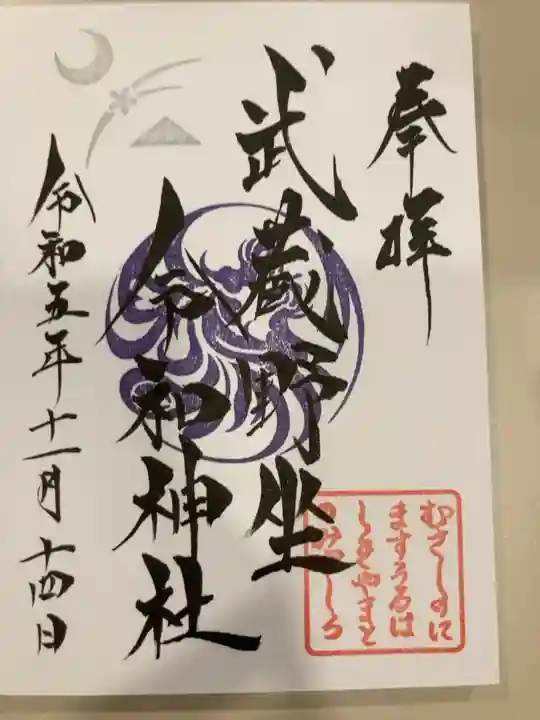 奉拝
武蔵野坐
令和神社
令和五年十一月十四日
むさしのに
ますうるは
しきやまと
のみやしろ